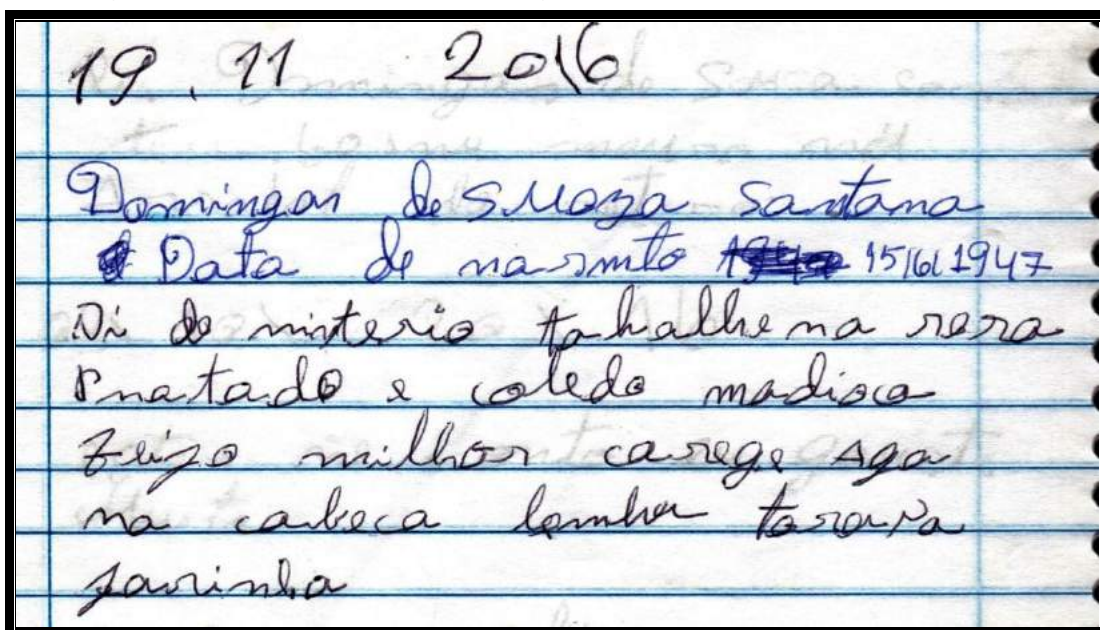 19.11 2016
Domingas de SMoza Santana
Data de nasmto 15/6/1947
Di do misterio tabalhe na rosa
Pratado e coledo madioca
Feijo milhor carege Aga
na cabeca lemha torara
farinha